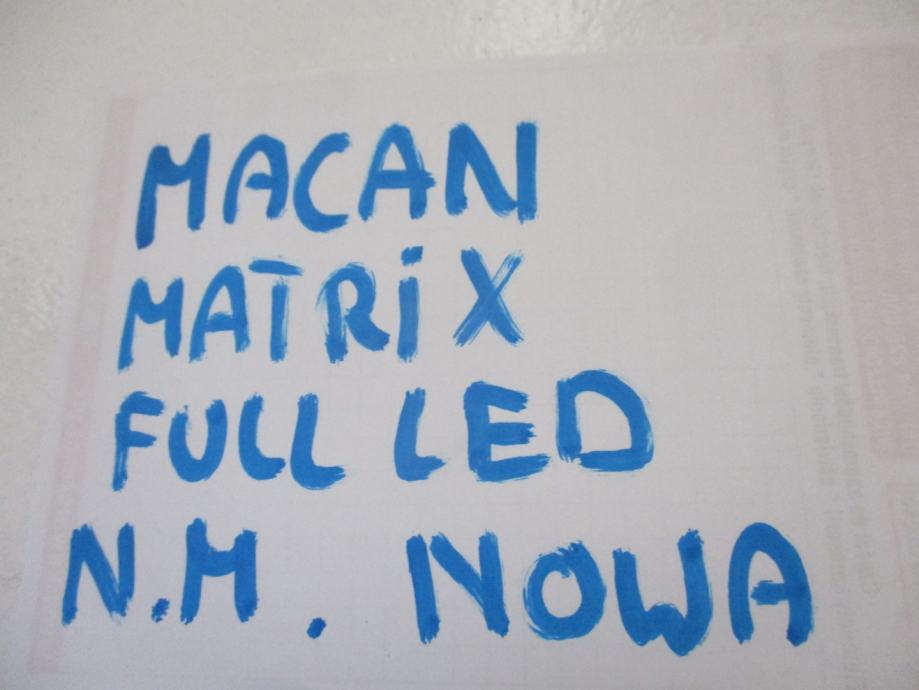 MACAN
MATRiX
FULL LED
N.M. NOWA